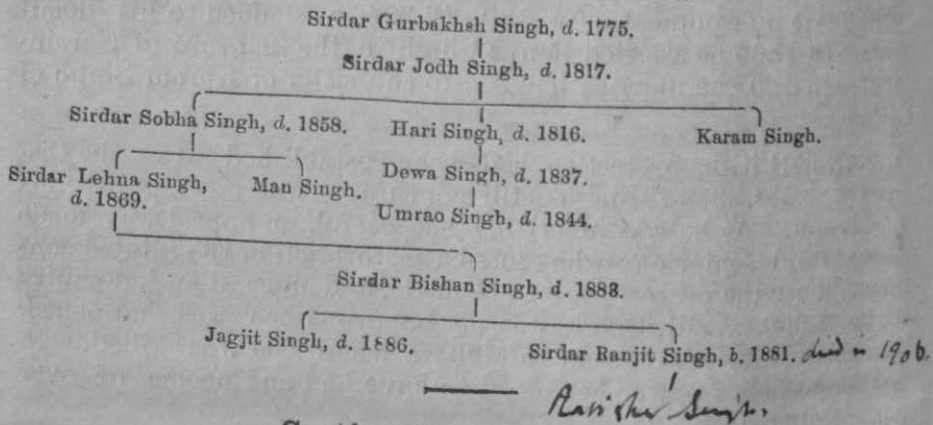 Sirdar Gurbakhsh Singh, d. 1775.
Sirdar Jodh Singh, d. 1817.
Sirdar Sobha Singh, d. 1858. Hari Singh, d. 1816. Karam Singh.
Sirdar Lehna Singh, d. 1869. Man Singh. Dewa Singh, d. 1837.
Umrao Singh, d. 1844.
Sirdar Bishan Singh, d. 1883.
Jagjit Singh, d. 1886. Sirdar Ranjit Singh, b. 1881. died in 1906.
Singh.